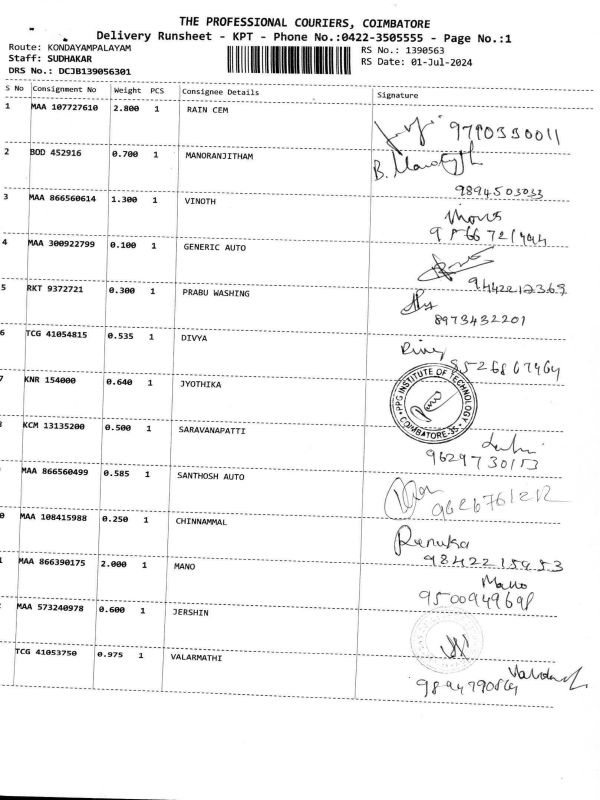 THE PROFESSIONAL COURIERS, COIMBATORE
Delivery Runsheet - KPT - Phone No.:0422-3505555 - Page No.:1
Route: KONDAYAMPALAYAM
RS No.: 1390563
Staff: SUDHAKAR
RS Date: 01-Jul-2024
DRS No.: DCJB139056301
S No Consignment No Weight PCS Consignee Details Signature
1 MAA 107727610 2.800 1 RAIN CEM
9790350011
2 BOD 452916 0.700 1 MANORANJITHAM
9894503033
3 MAA 866560614 1.300 1 VINOTH
4 MAA 300922799 0.100 1 GENERIC AUTO
5 RKT 9372721 0.300 1 PRABU WASHING
8973432201
6 TCG 41054815 0.535 1 DIVYA
7 KNR 154000 0.640 1 JYOTHIKA
PPG INSTITUTE OF TECHNOLOGY
COIMBATORE-35
KCM 13135200 0.500 1 SARAVANAPATTI
MAA 866560499 0.585 1 SANTHOSH AUTO
MAA 108415988 0.250 1 CHINNAMMAL
Renuka
MAA 866390175 2.000 1 MANO
Mano
9500949698
MAA 573240978 0.600 1 JERSHIN
TCG 41053750 0.975 1 VALARMATHI